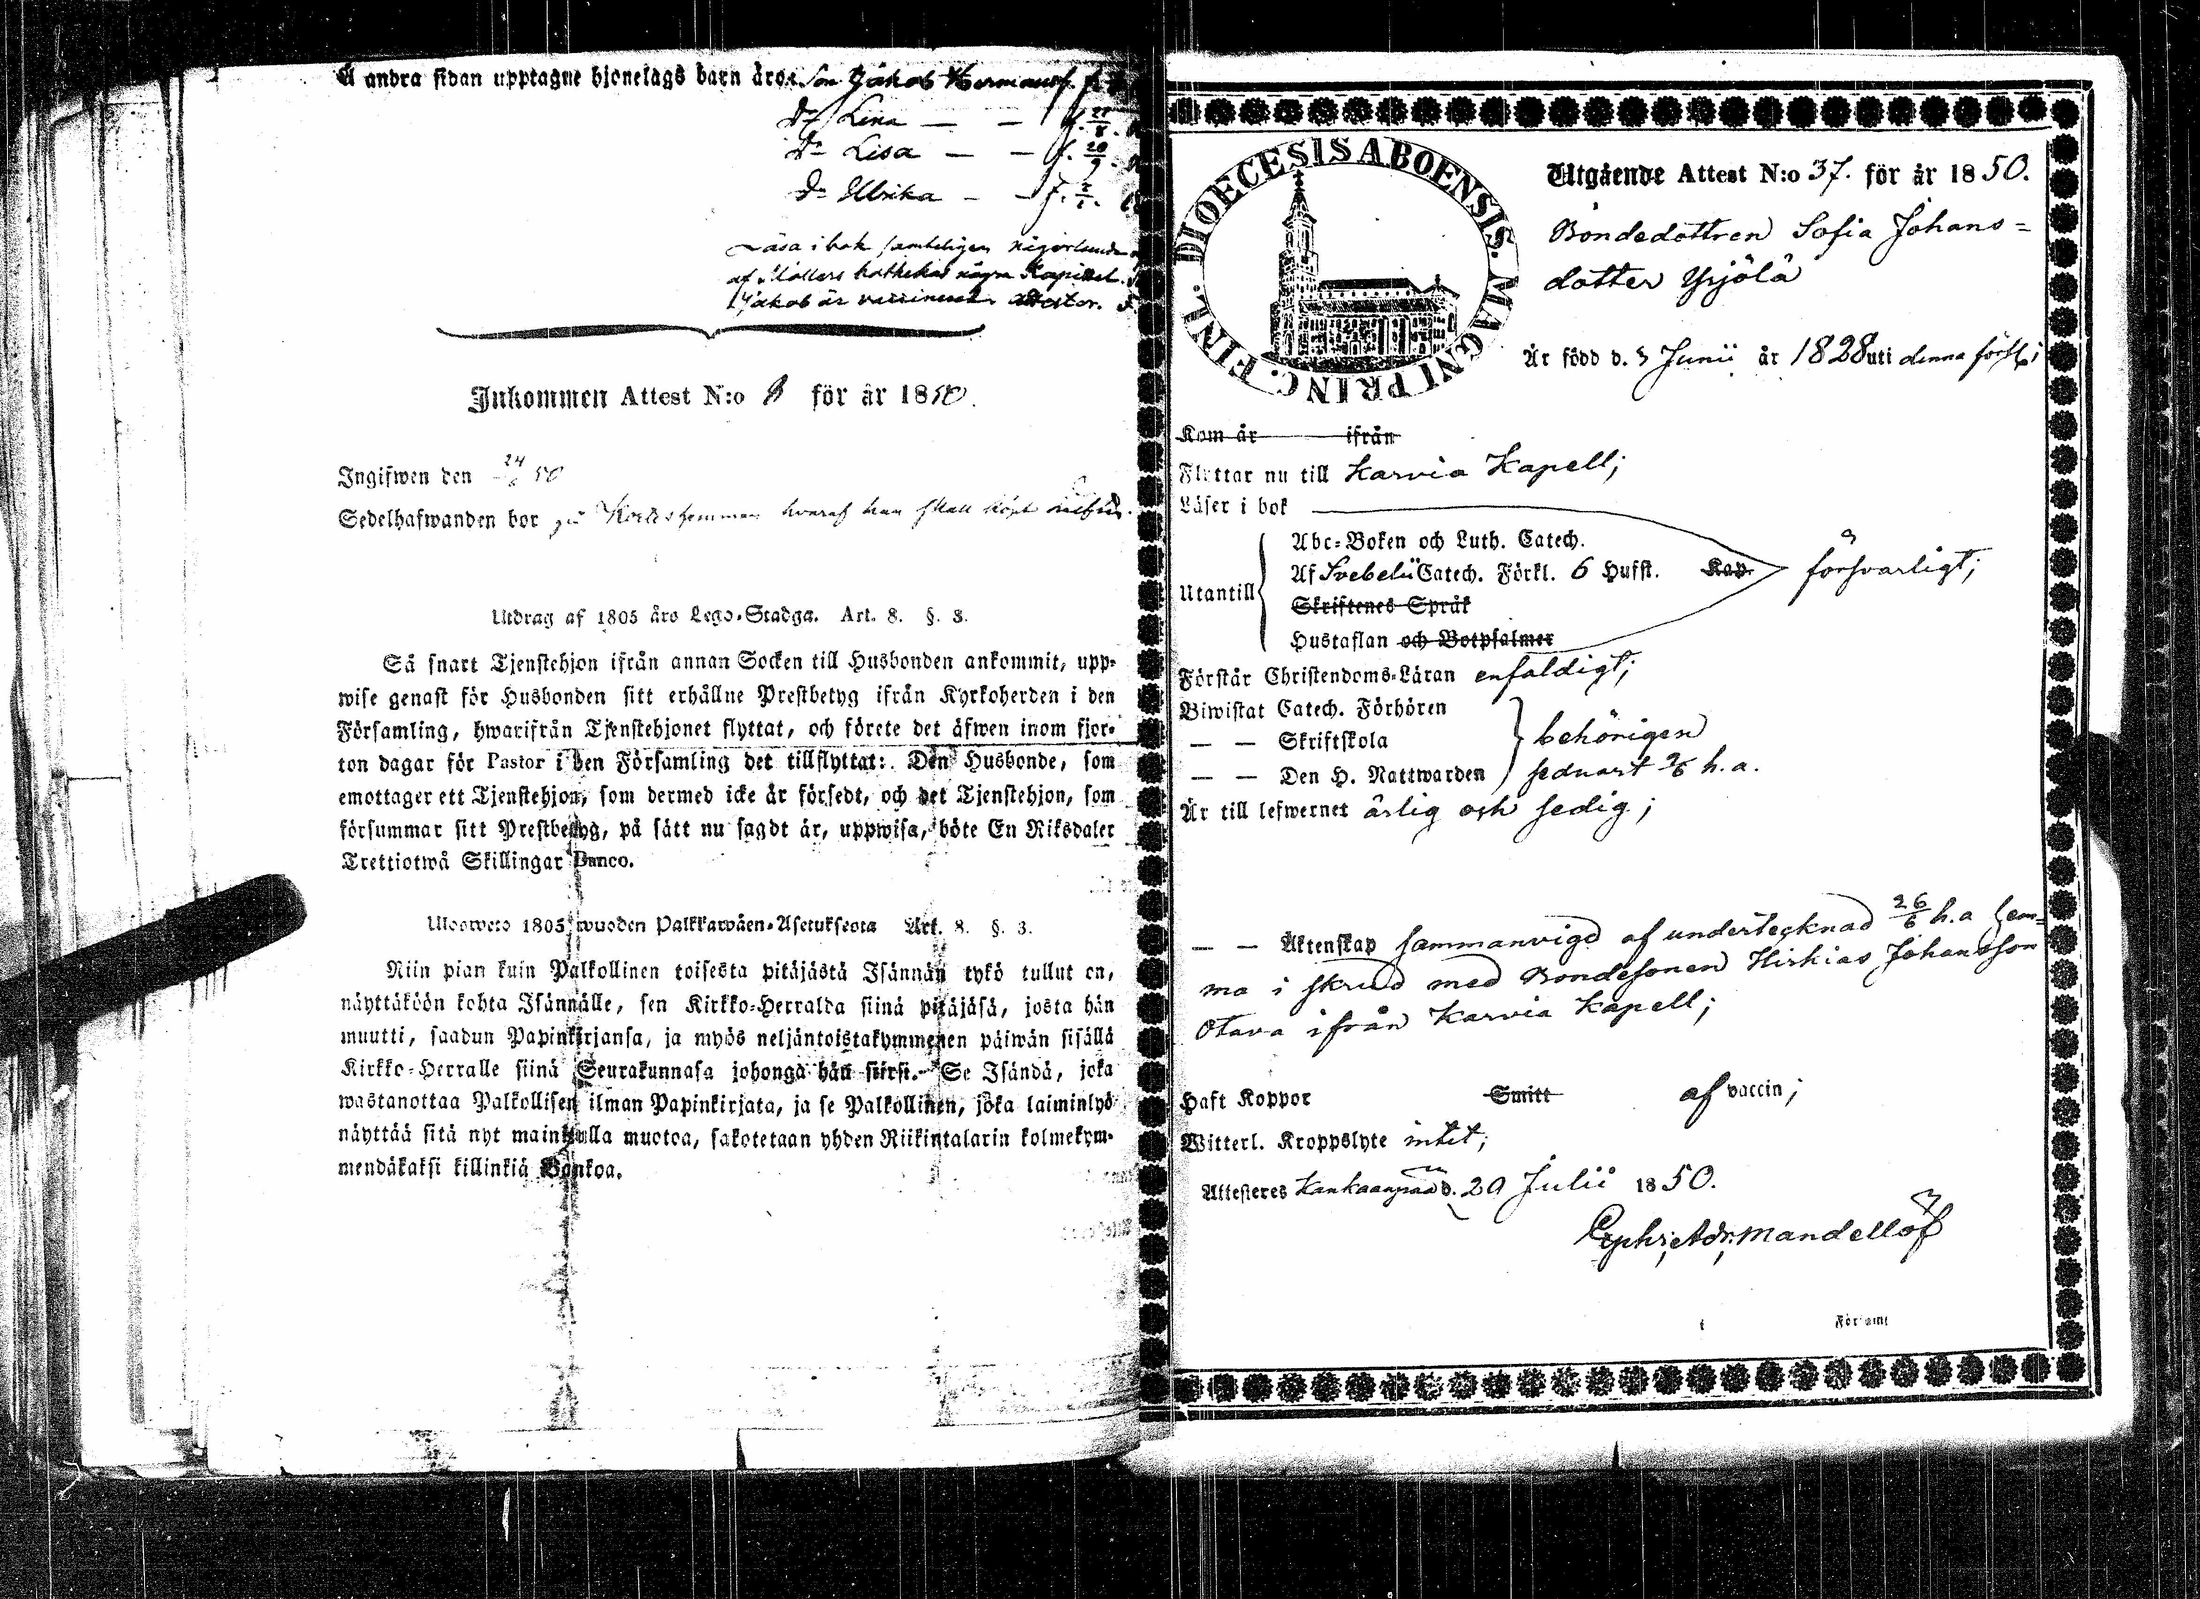 å andra sidan upptagne hjonelags barn äro: Son Jakob Hermansf. f.
Dr Lina — — f. 25/8.
Dr Lisa — — f. 20/9.
Dr Ulrika — — f.
Läsa i bok samteligen någorlunda
af Möllers kattekes några Kapittel.
Jakob är vaccinerad
Inkommen Attest N:o 8 för år 1850.
Ingifwen den 24 50
Sedelhafwanden bor på hemman hvaraf han skall köpt
Utdrag af 1805 års Lego-Stadga. Art. 8. §. 3.
Så snart Tjenstehjon ifrån annan Socken till Husbonden ankommit, upp-
wise genast för Husbonden sitt erhållne Prestbetyg ifrån Kyrkoherden i den
Församling, hwarifrån Tjenstehjonet flyttat, och förete det äfwen inom fjor-
ton dagar för Pastor i den Församling det tillflyttat: Den Husbonde, som
emottager ett Tjenstehjon, som dermed icke är försedt, och det Tjenstehjon, som
försummar sitt Prestbetyg, på sätt nu sagdt är, uppwisa, böte En Riksdaler
Trettiotwå Skillingar Banco.
Ulosweto 1805 wuoden Palkkawäen-Asetuksesta Art. 8. §. 3.
Niin pian kuin Palkollinen toisesta pitäjästä Isännän tykö tullut on,
näyttäköön kohta Isännälle, sen Kirkko-Herralda siinä pitäjäsä, josta hän
muutti, saadun Papinkirjansa, ja myös neljäntoistakymmenen päiwän sisällä
Kirkko-Herralle siinä Seurakunnasa johonga hän siirsi. Se Isändä, joka
wastanottaa Palkollisen ilman Papinkirjata, ja se Palkollinen, joka laiminlyö
näyttää sitä nyt mainitulla muotoa, sakotetaan yhden Riikintalarin kolmekym-
mendäkaksi killinkiä Bankoa.
DIOECESIS ABOENSIS. MAGNI PRINC. FINL.
Utgående Attest N:o 37. för år 1850.
Bondedottren Sofia Johans=
dotter Yrjölä
Är född d. 3 Junii år 1828 uti denna förs:l;
Kom år ifrån
Flyttar nu till Karvia Kapell;
Läser i bok
Abc-Boken och Luth. Catech.
Af Svebelii Catech. Förkl. 6 Hufst. Kap. försvarligt;
Utantill
Skriftenes Språk
Hustaflan och Botpsalmer
Förstår Christendoms-Läran enfaldigt;
Biwistat Catech. Förhören
— — Skriftskola behörigen
— — Den H. Nattwarden sednast 9/6 h. a.
Är till lefwernet ärlig och sedig;
— — Äktenskap sammanvigd af undertecknad 26/6 h.a hem-
ma i skrud med Bondesonen Hiskias Johansson
Otava ifrån Karvia Kapell;
Haft Koppor Smitt af vaccin;
Witterl. Kroppslyte intet;
Attesteras Kankaanpää d. 29 Julii 1850.
Ephr. Adr. Mandellöf